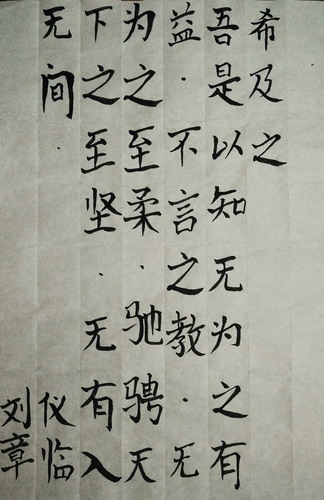 希及之
吾是以知无为之有
益·不言之教·无
为之至柔·驰骋天
下之至坚·无有入
无间·
仪临
刘章